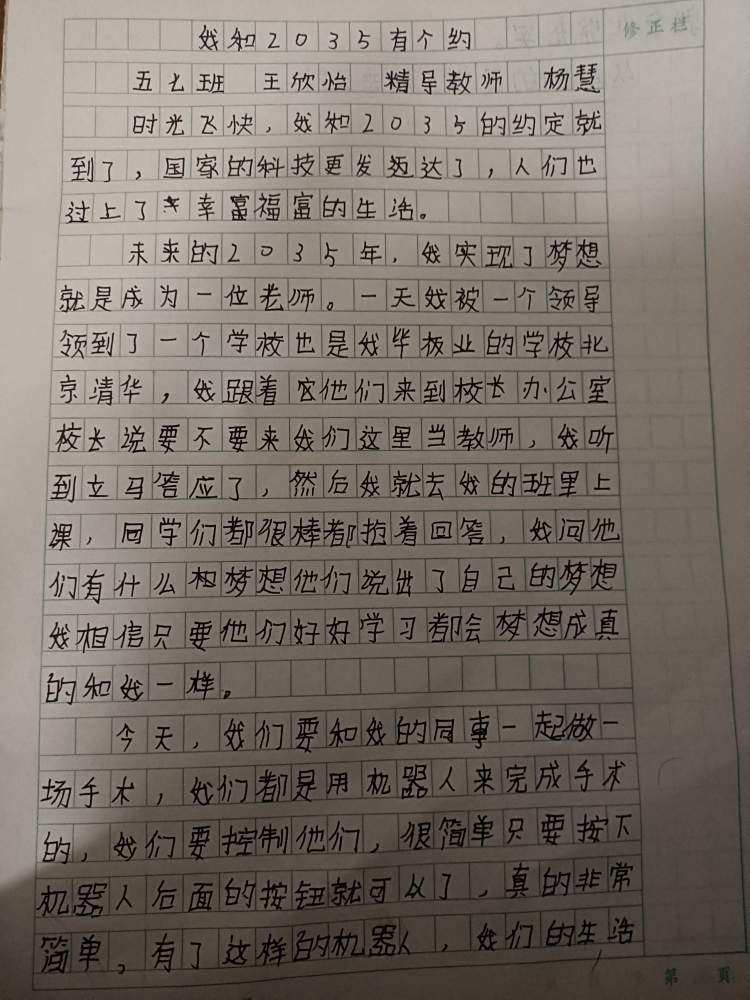 我和2035有个约
修正栏
五七班 王欣怡 精导教师 杨慧
时光飞快，我和2035的约定就
到了，国家的科技更发达了，人们也
过上了幸富福富的生活。
未来的2035年，我实现了梦想
就是成为一位老师。一天我被一个领导
领到了一个学校也是我毕业的学校北
京清华，我跟着他们来到校长办公室
校长说要不要来我们这里当教师，我听
到立马答应了，然后我就去我的班里上
课，同学们都很棒都抢着回答，我问他
们有什么梦想他们说出了自己的梦想
我相信只要他们好好学习都会梦想成真
的和我一样。
今天，我们要和我的同事一起做一
场手术，我们都是用机器人来完成手术
的，我们要控制他们，很简单只要按下
机器人后面的按钮就可以了，真的非常
简单，有了这样的机器人，我们的生活
第 页